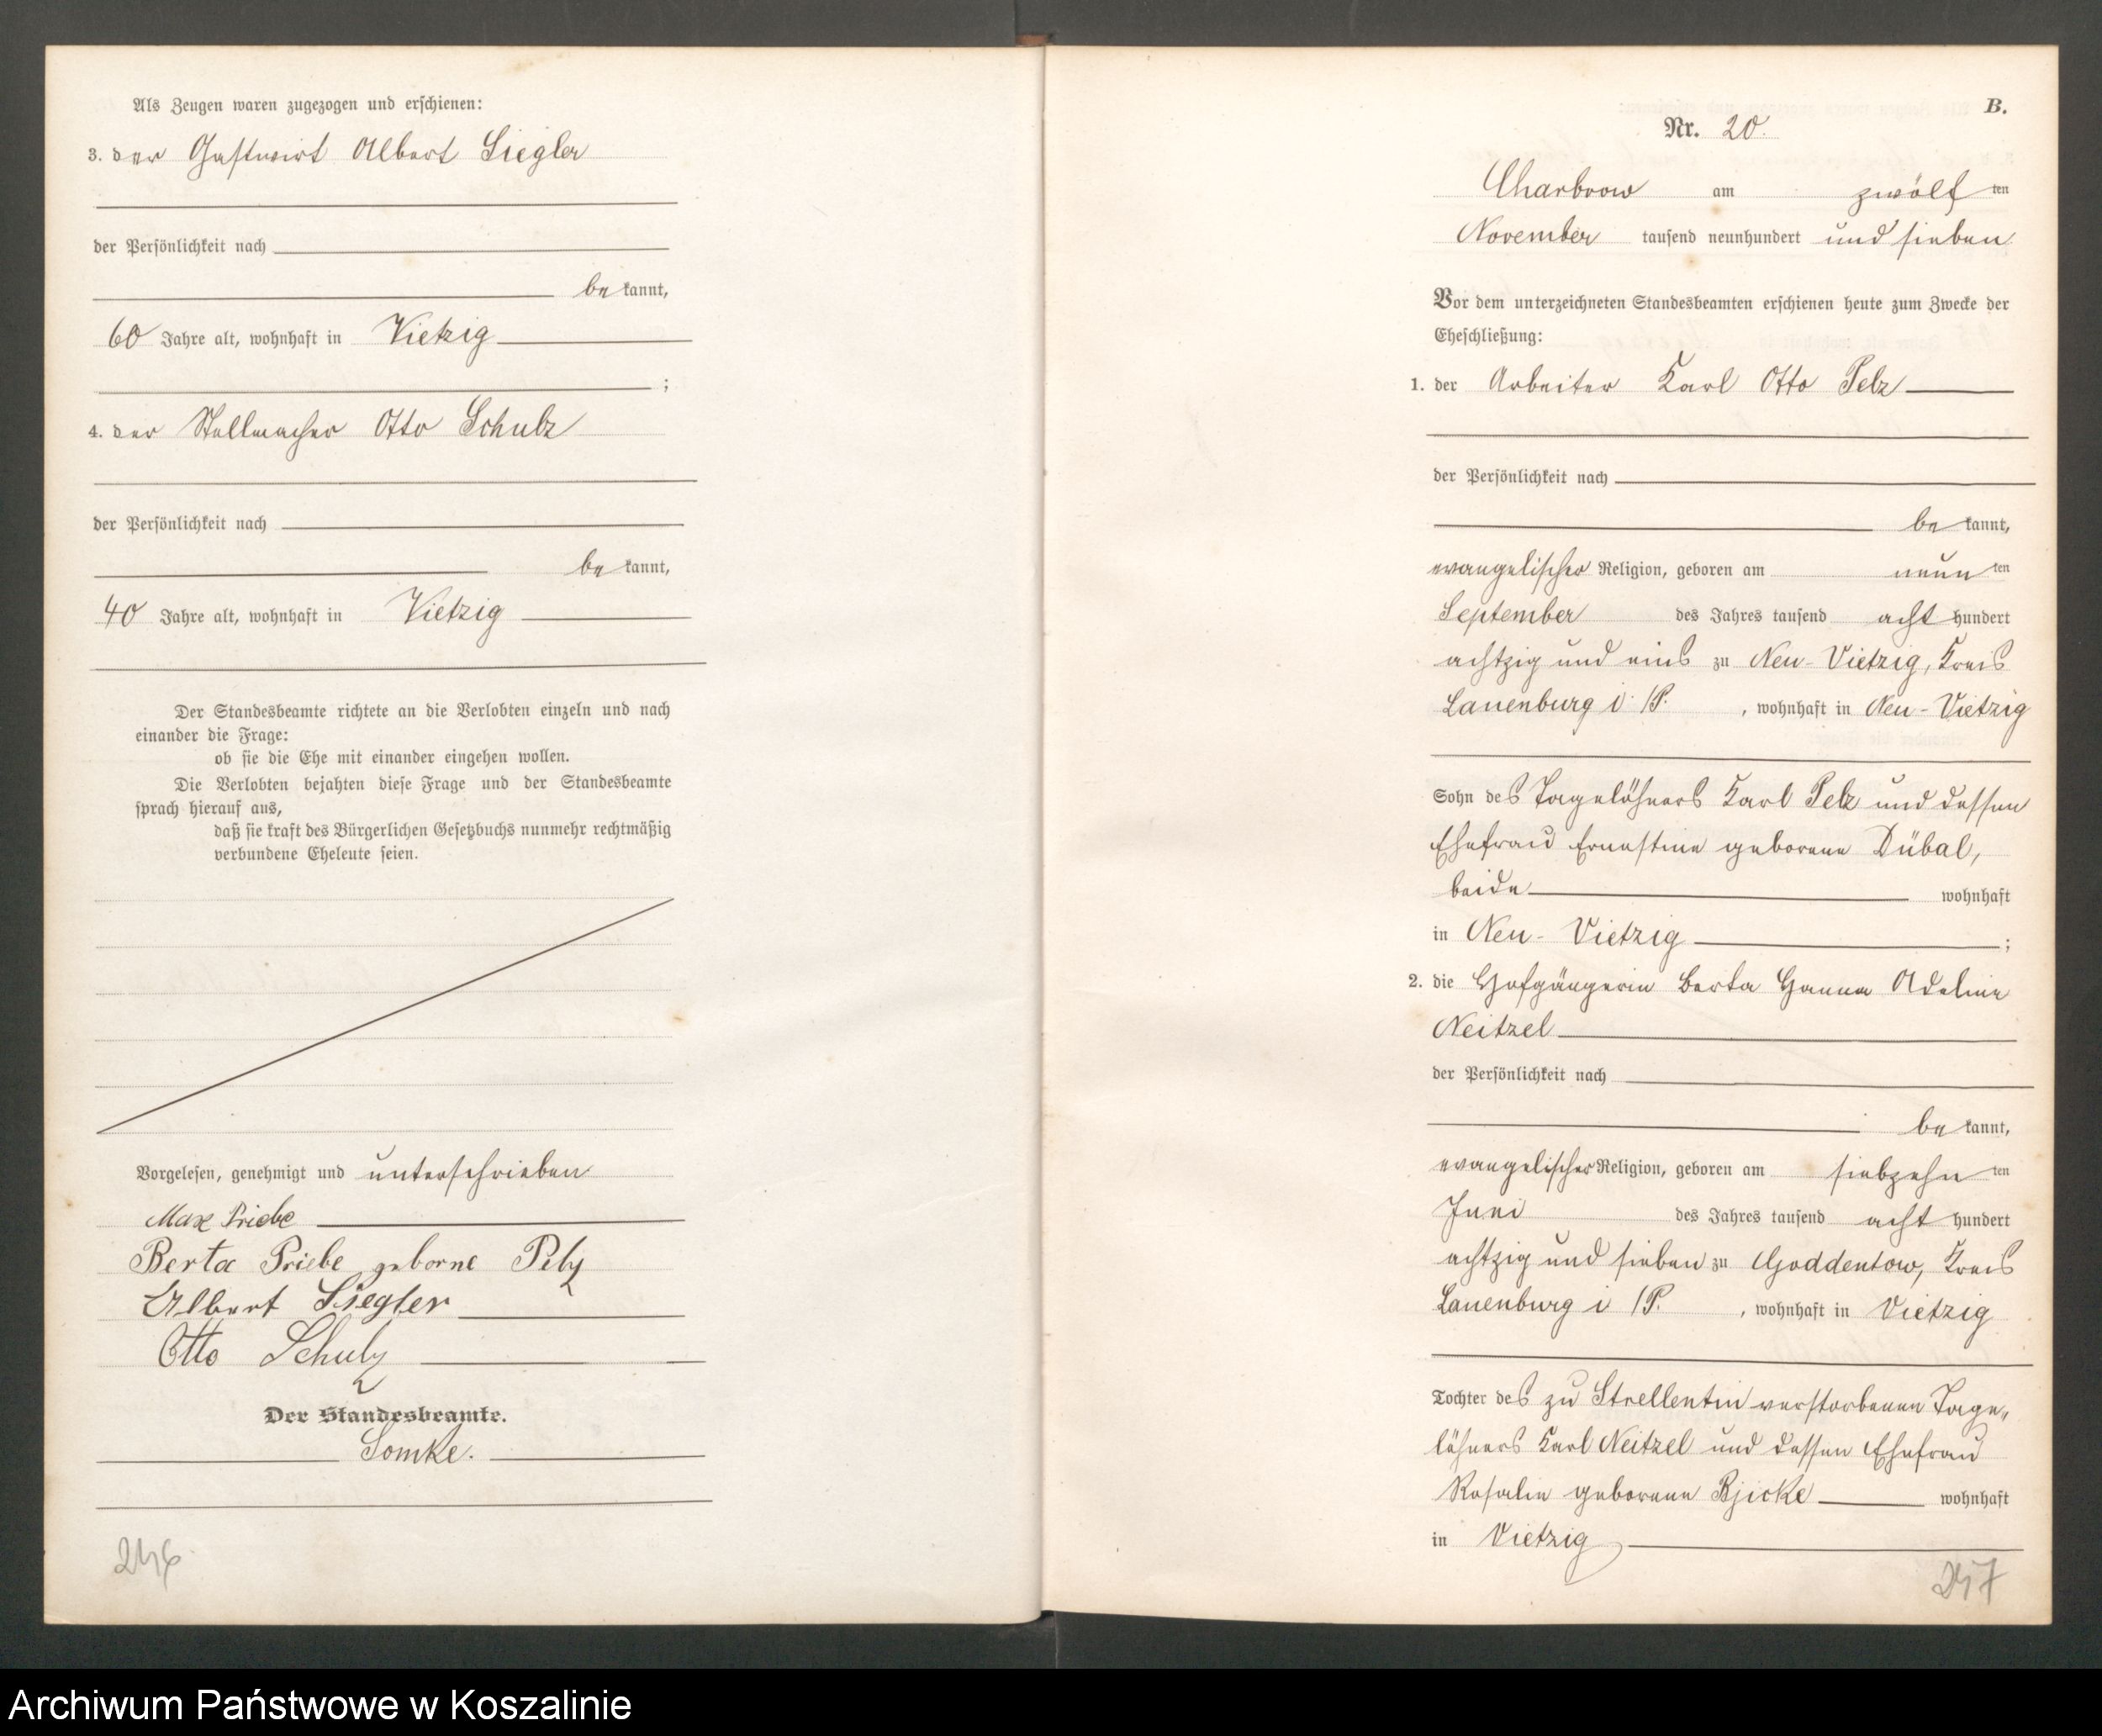 Als Zeugen waren zugezogen und erschienen:
3. der Gastwirt Albert Liegler
der Persönlichkeit nach
bekannt,
60 Jahre alt, wohnhaft in Vietzig
;
4. der Stellmacher Otto Schulz
der Persönlichkeit nach
bekannt,
40 Jahre alt, wohnhaft in Vietzig
Der Standesbeamte richtete an die Verlobten einzeln und nach
einander die Frage:
ob sie die Ehe mit einander eingehen wollen.
Die Verlobten bejahten diese Frage und der Standesbeamte
sprach hierauf aus,
daß sie kraft des Bürgerlichen Gesetzbuchs nunmehr rechtmäßig
verbundene Eheleute seien.
Vorgelesen, genehmigt und unterschrieben
Max Priebe
Berta Priebe geborne Pelz
Albert Liegler
Otto Schulz
Der Standesbeamte.
Somke.
246
B.
Nr. 20.
Charbrow am zwölften
November tausend neunhundert und sieben
Vor dem unterzeichneten Standesbeamten erschienen heute zum Zwecke der
Eheschließung:
1. der Arbeiter Karl Otto Pelz
der Persönlichkeit nach
bekannt,
evangelischer Religion, geboren am neunten
September des Jahres tausend achthundert
achtzig und eins zu Neu-Vietzig, Kreis
Lauenburg i. P. , wohnhaft in Neu-Vietzig
Sohn des Tagelöhners Karl Pelz und dessen
Ehefrau Ernestine geborene Dübal,
beide wohnhaft
in Neu-Vietzig ;
2. die Hofgängerin Berta Hanna Adeline
Neitzel
der Persönlichkeit nach
bekannt,
evangelischer Religion, geboren am siebzehnten
Juni des Jahres tausend achthundert
achtzig und sieben zu Goddentow, Kreis
Lauenburg i P. , wohnhaft in Vietzig
Tochter des zu Strellentin verstorbenen Tage-
löhners Karl Neitzel und dessen Ehefrau
Rosalie geborene Bjicke wohnhaft
in Vietzig
247
Archiwum Państwowe w Koszalinie